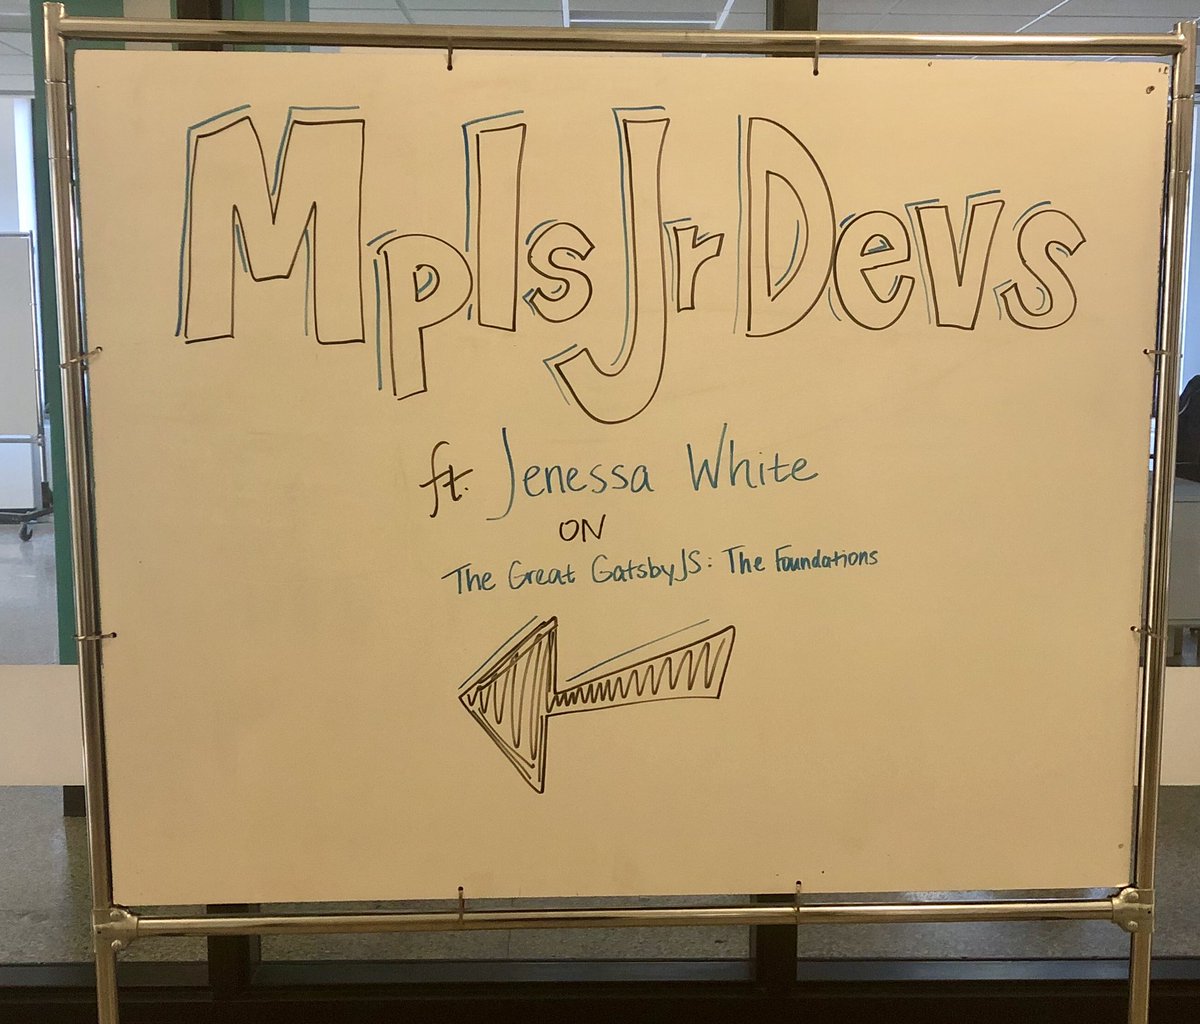 Mpls Jr Devs
ft. Jenessa White
ON
The Great GatsbyJS: The Foundations